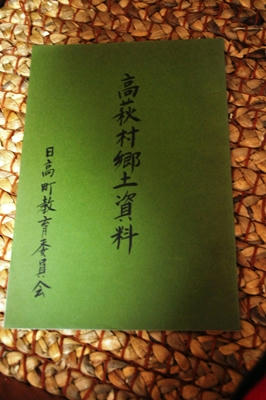 高萩村郷土資料
日高町教育委員会